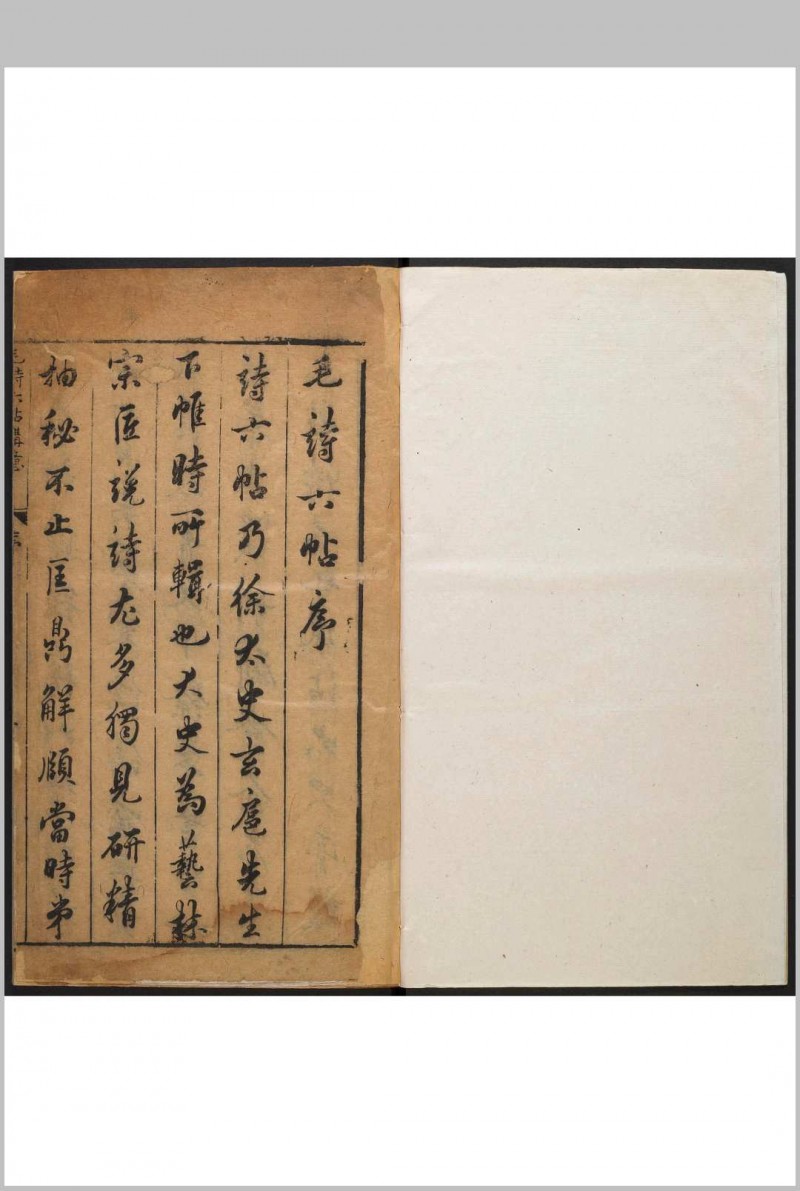 毛詩六帖序
詩六帖乃徐太史玄扈先生
下帷時所輯也太史為藝林
宗匠說詩尤多獨見研精
抽秘不止匡鼎解頤當時弟
毛詩六帖講意